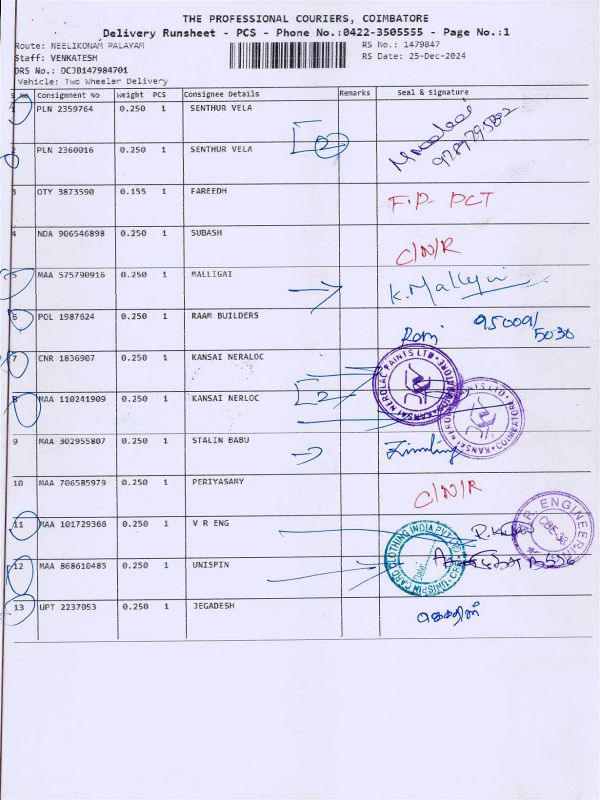 THE PROFESSIONAL COURIERS, COIMBATORE
Delivery Runsheet - PCS - Phone No.:0422-3505555 - Page No.:1
Route: NEELIKONAM PALAYAM RS No.: 1479847
Staff: VENKATESH RS Date: 25-Dec-2024
DRS No.: DCJB147984701
Vehicle: Two Wheeler Delivery
S No. Consignment No Weight PCS Consignee Details Remarks Seal & Signature
1 PLN 2359764 0.250 1 SENTHUR VELA
2 PLN 2360016 0.250 1 SENTHUR VELA 2
3 OTY 3873590 0.155 1 FAREEDH F.P- PCT
4 NDA 906546898 0.250 1 SUBASH C/N/R
5 MAA 575790916 0.250 1 MALLIGAI K.Malligai
6 POL 1987624 0.250 1 RAAM BUILDERS 95009/
5030
7 CNR 1836907 0.250 1 KANSAI NERALOC KANSAI NEROLAC PAINTS LTD COIMBATORE
8 MAA 110241909 0.250 1 KANSAI NERLOC 2 KANSAI NEROLAC COIMBATORE
9 MAA 302955807 0.250 1 STALIN BABU
10 MAA 706585979 0.250 1 PERIYASAMY C/N/R
11 MAA 101729366 0.250 1 V R ENG ENGINEERING CBE-38
12 MAA 868610485 0.250 1 UNISPIN UNISPIN CARD CLOTHING INDIA PVT LTD Date:
13 UPT 2237053 0.250 1 JEGADESH